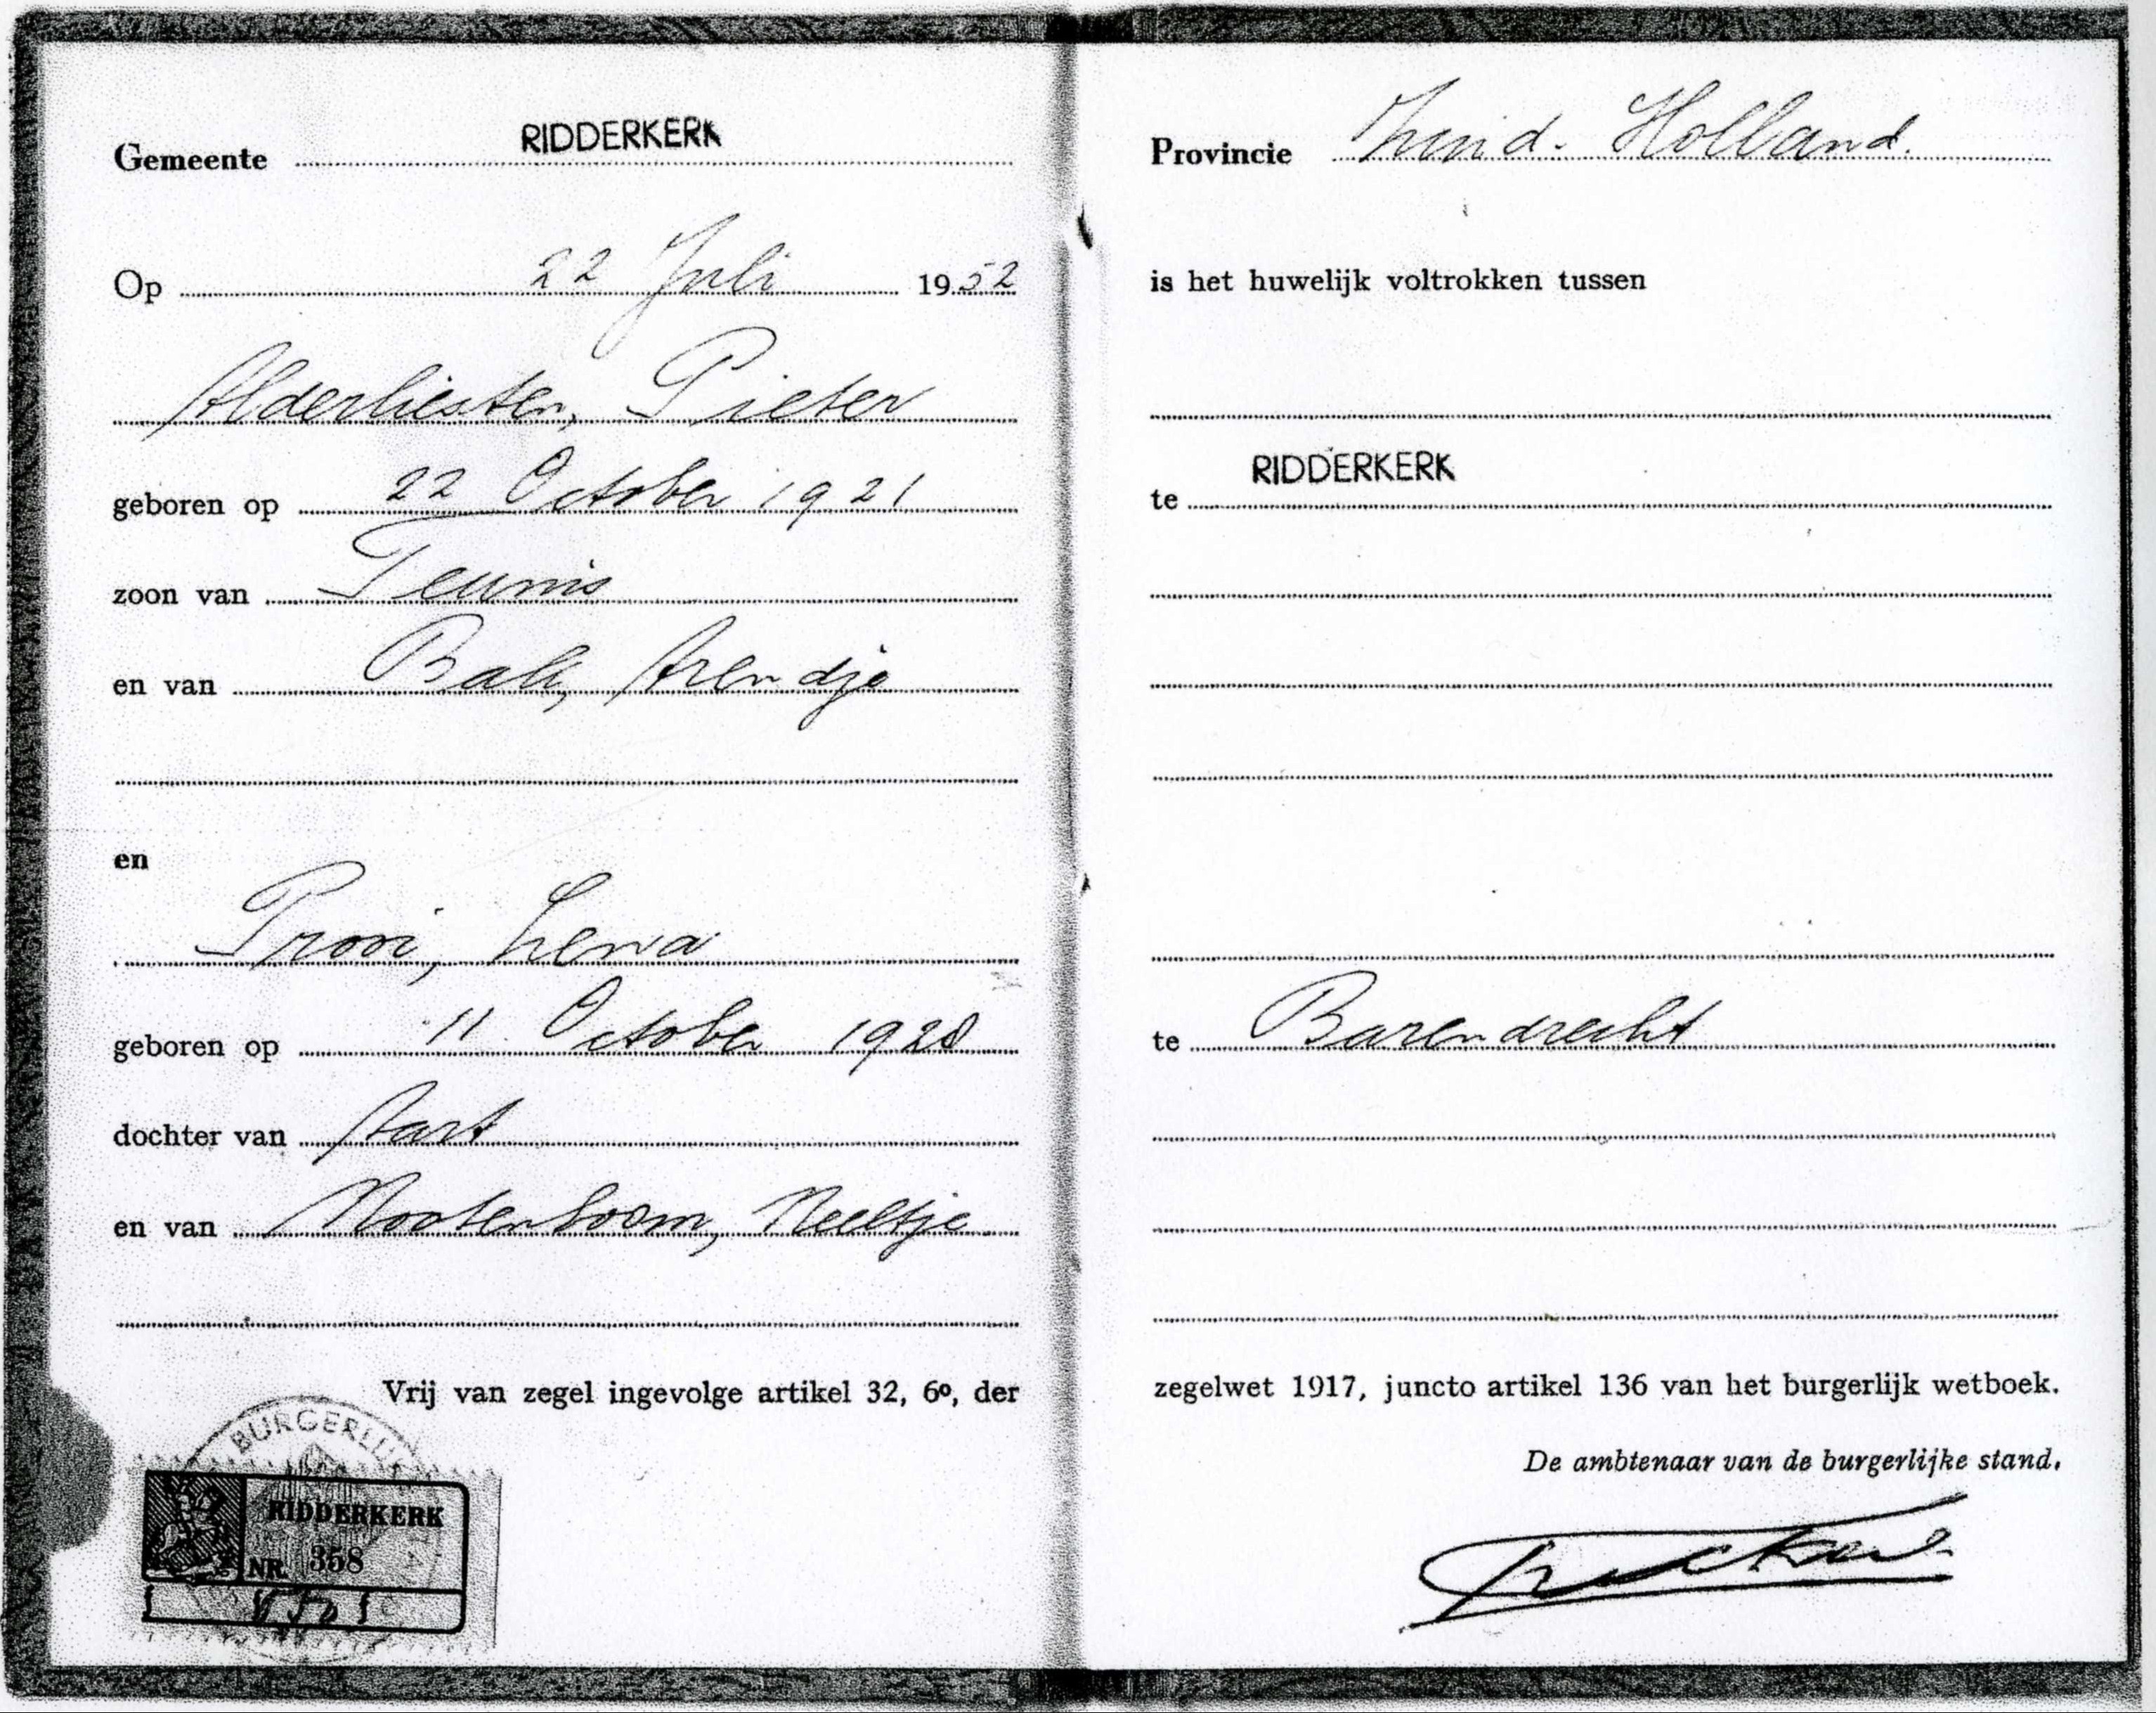 Gemeente RIDDERKERK
Op 22 Juli 1952
Alderliesten, Pieter
geboren op 22 October 1921
zoon van Teunis
en van Bak, Arendje
en
Prooi, Lena
geboren op 11 October 1928
dochter van Aart
en van Nootenboom, Neeltje
Vrij van zegel ingevolge artikel 32, 6º, der
BURGERLIJ
RIDDERKERK
NR. 358
Provincie Zuid-Holland.
is het huwelijk voltrokken tussen
te RIDDERKERK
te Barendrecht
zegelwet 1917, juncto artikel 136 van het burgerlijk wetboek.
De ambtenaar van de burgerlijke stand,